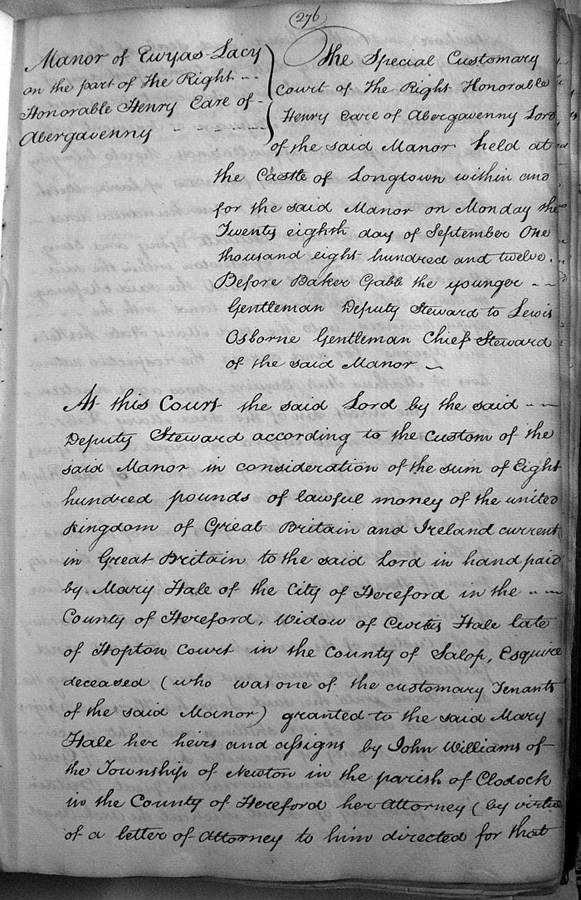 (276)
Manor of Ewyas-Lacy
on the part of The Right - -
Honorable Henry Eare of -
Abergavenny - - -
The Special Customary
Court of The Right Honorable
Henry Eare of Abergavenny Lord
of the said Manor held at
the Castle of Longtown within and
for the said Manor on Monday the
Twenty eighth day of September One
thousand eight hundred and twelve.
Before Baker Gabb the younger - -
Gentleman Deputy Steward to Lewis
Osborne Gentleman Chief Steward
of the said Manor -
At this Court the said Lord by the said - -
Deputy Steward according to the Custom of the
said Manor in consideration of the sum of Eight
hundred pounds of lawful money of the united
Kingdom of Great Britain and Ireland current
in Great Britain to the said Lord in hand paid
by Mary Hale of the City of Hereford in the - -
County of Hereford, Widow of Curtis Hale late
of Hopton Court in the County of Salop, Esquire
deceased (who was one of the customary Tenants
of the said Manor) granted to the said Mary
Hale her heirs and assigns by John Williams of
the Township of Newton in the parish of Clodock
in the County of Hereford her Attorney (by virtue
of a letter of Attorney to him directed for that